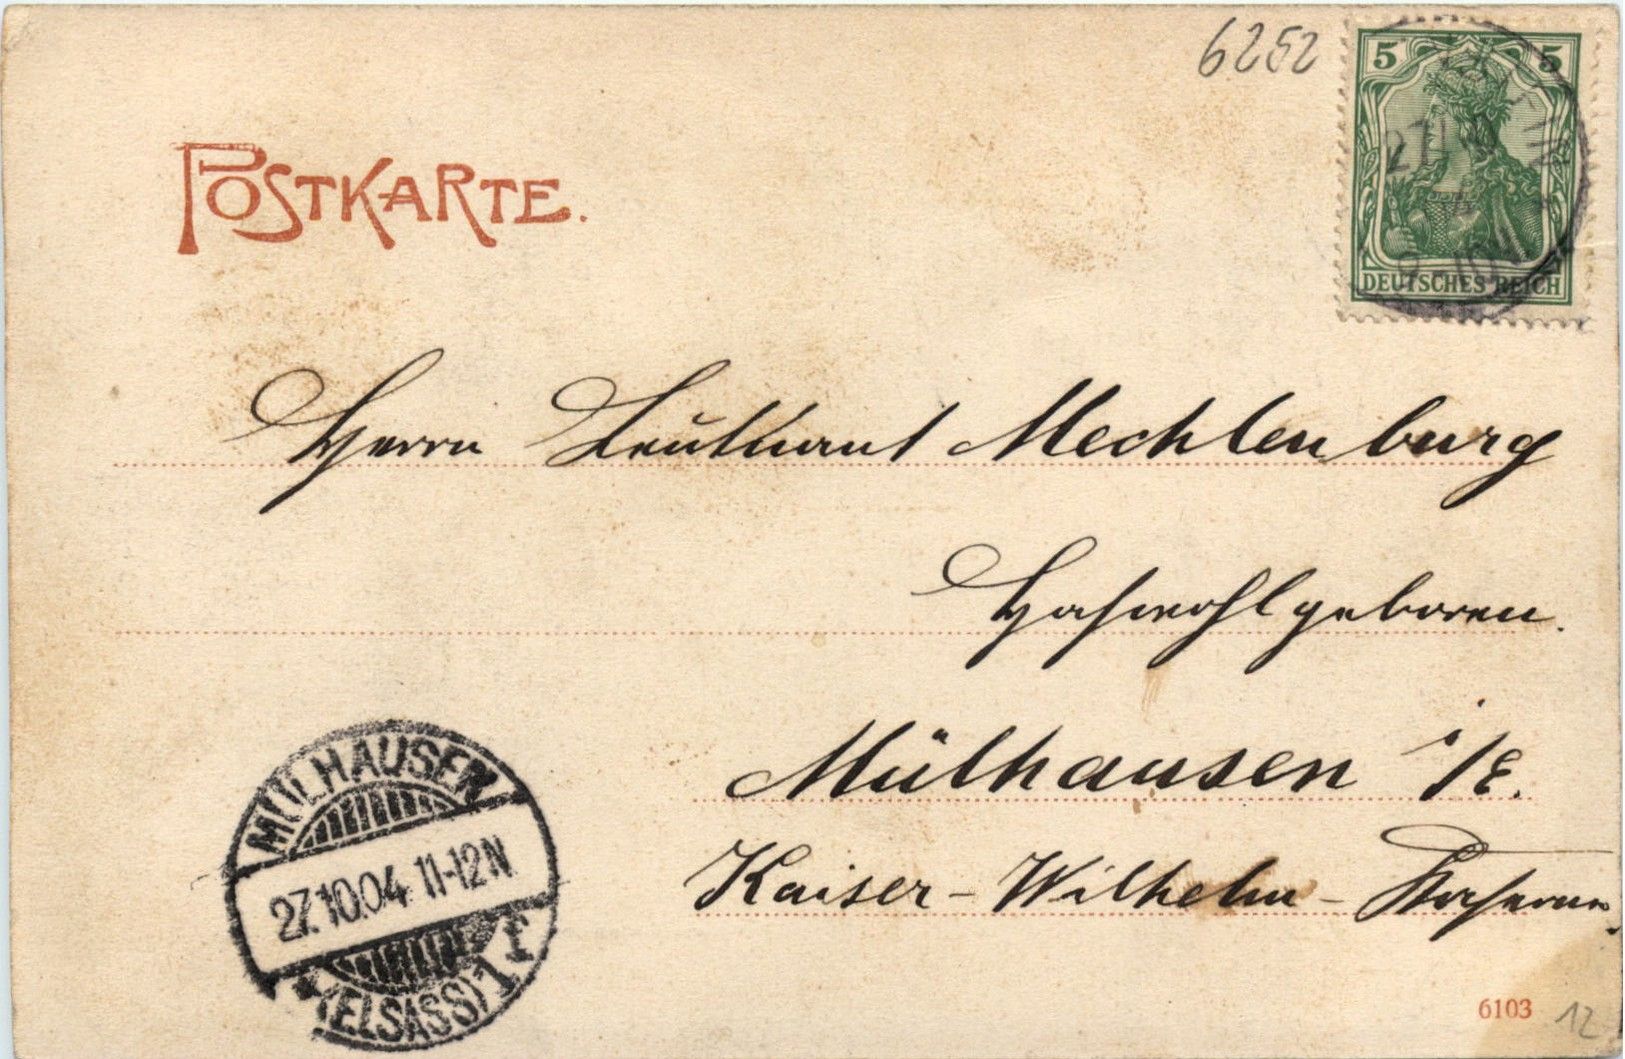 6252
5 5
DEUTSCHES REICH
POSTKARTE.
Herrn Leutnant Mechlenburg
Hochwohlgeboren.
Mülhausen i/E.
Kaiser-Wilhelm-Kaserne
MÜLHAUSEN
27.10.04 11-12N
(ELSASS) 1 f
6103
12